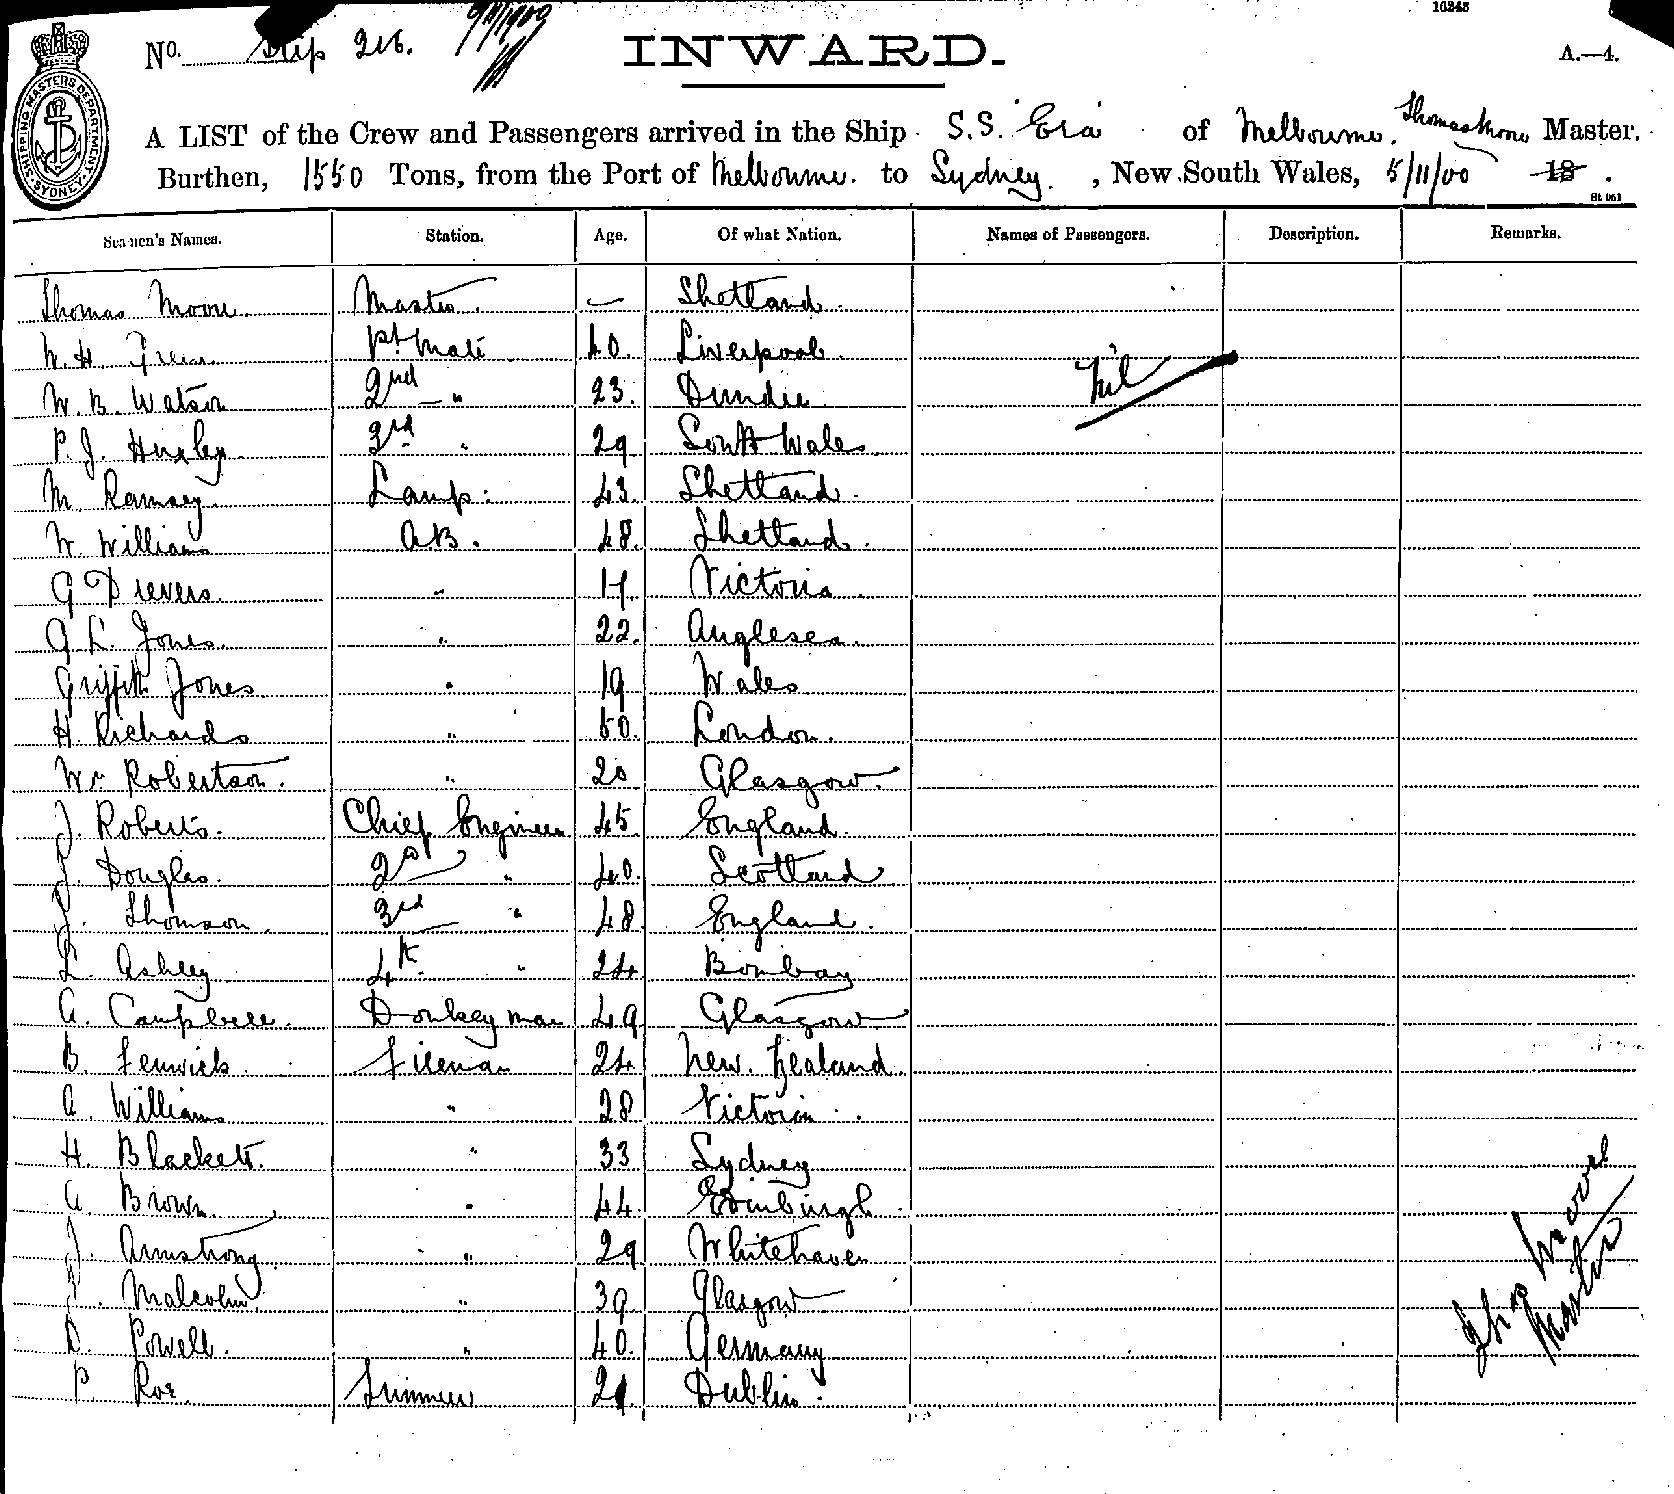 10343
No. Ship 216. 9/11/1900
INWARD.
A.—4.
SHIPPING MASTERS DEPARTMENT SYDNEY
A LIST of the Crew and Passengers arrived in the Ship S.S. Era of Melbourne. Thomas Moore Master.
Burthen, 1550 Tons, from the Port of Melbourne. to Sydney. , New South Wales, 5/11/00 18 .
Seamen's Names. Station. Age. Of what Nation. Names of Passengers. Description. Remarks.
Thomas Moore Master. — Shetland.
W. H. 1st Mate 40. Liverpool.
W. B. Watson 2nd " 23. Dundee Nil
P. J. Huxley 3rd " 29 South Wales
M Ramsey Lamp: 43. Shetland.
W. Williams AB. 48. Shetland.
G Drevers. " 17. Victoria
G L. Jones. " 22. Anglesea.
Griffith Jones " 19 Wales
H. Richards " 50. London.
Wm Robertson. " 20 Glasgow.
J. Roberts. Chief Engineer 45 England.
J. Douglas. 2nd " 40. Scotland
J. Thomson. 3rd " 48. England.
L. Ashley 4th " 24 Bombay
A. Campbell. Donkeyman 49 Glasgow
B. Fenwick Fireman 24 New Zealand.
A. Williams " 28 Victoria.
H. Blackett. " 33 Sydney
A. Brown. " 44. Edinburgh
J. Armstrong " 29 Whitehaven
J. Malcolm. " 39. Glasgow
D. Powell. " 40. Germany
P. Roe. Trimmer 21. Dublin.
Thos Moore
Master